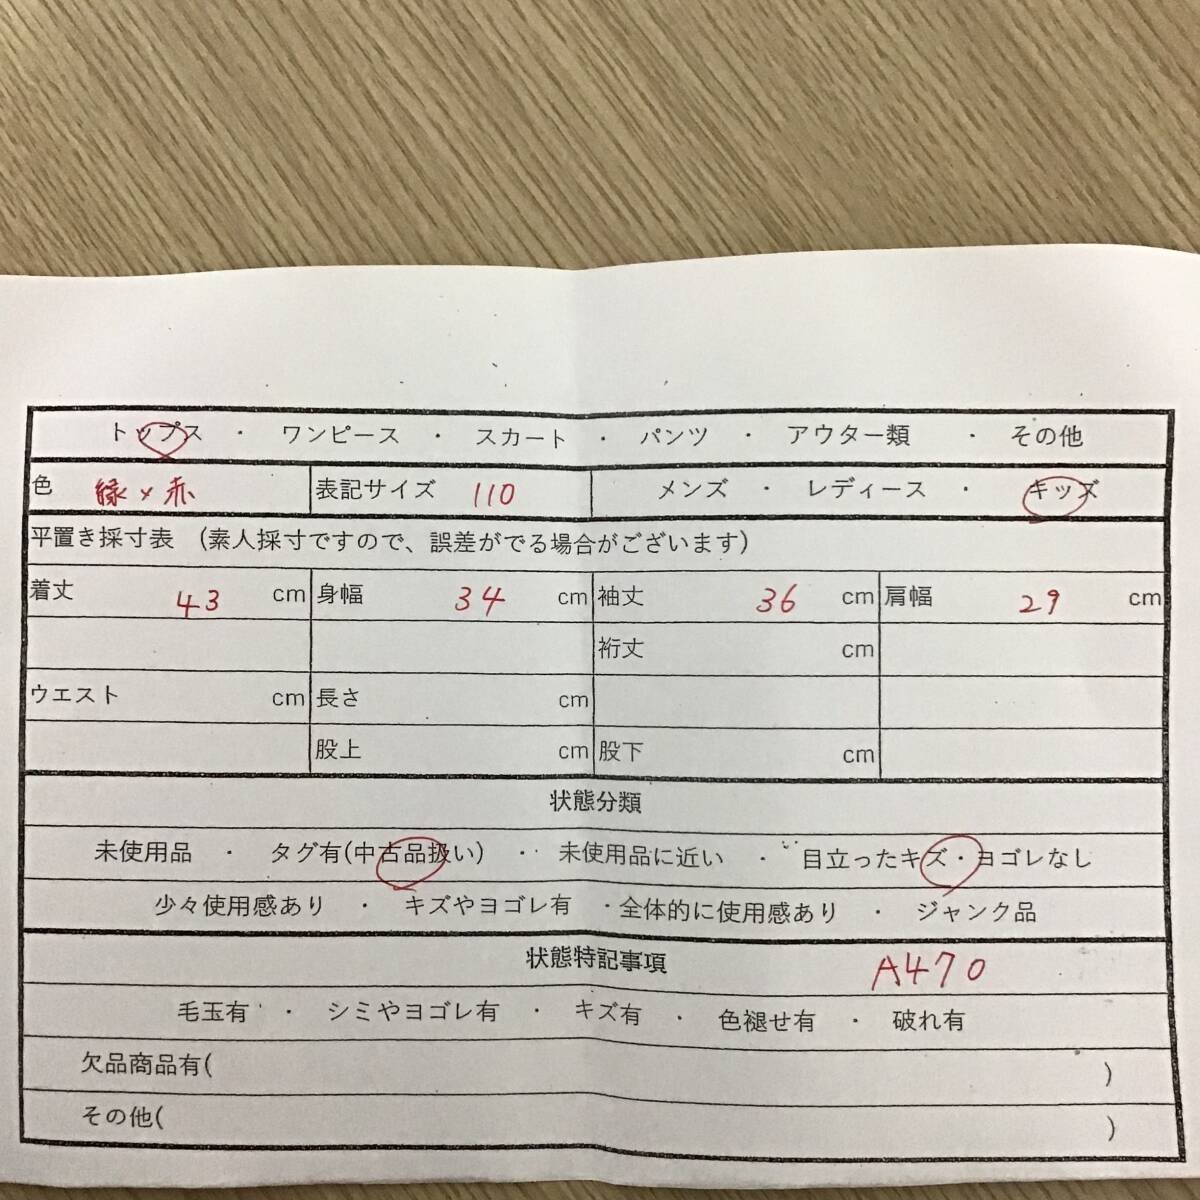 トップス ・ ワンピース ・ スカート ・ パンツ ・ アウター類 ・ その他
色 緑×赤 表記サイズ 110 メンズ ・ レディース ・ キッズ
平置き採寸表 (素人採寸ですので、誤差がでる場合がございます)
着丈 43 cm 身幅 34 cm 袖丈 36 cm 肩幅 29 cm
裄丈 cm
ウエスト cm 長さ cm
股上 cm 股下 cm
状態分類
未使用品 ・ タグ有(中古品扱い) ・ 未使用品に近い ・ 目立ったキズ・ヨゴレなし
少々使用感あり ・ キズやヨゴレ有 ・全体的に使用感あり ・ ジャンク品
状態特記事項 A470
毛玉有 ・ シミやヨゴレ有 ・ キズ有 ・ 色褪せ有 ・ 破れ有
欠品商品有( )
その他( )